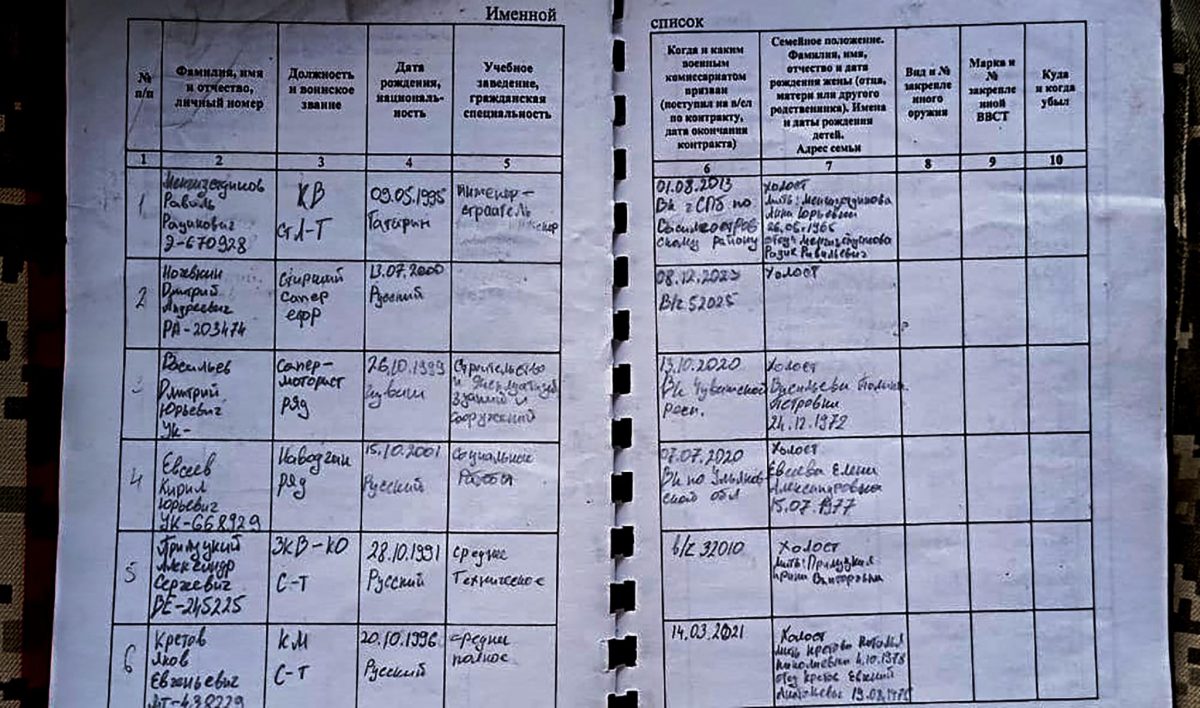 Именной
список
№ п/п
Фамилия, имя
и отчество,
личный номер
Должность
и воинское
звание
Дата
рождения,
националь-
ность
Учебное
заведение,
гражданская
специальность
Когда и каким
военным
комиссариатом
призван
(поступил на в/сл
по контракту,
дата окончания
контракта)
Семейное положение.
Фамилия, имя,
отчество и дата
рождения жены (отца,
матери или другого
родственника). Имена
и даты рождения
детей.
Адрес семьи
Вид и №
закрепле
нного
оружия
Марка и
№
закрепле
нной
ВВСТ
Куда
и когда
убыл
1 2 3 4 5 6 7 8 9 10
1
Равиль
Э-670928
КВ
Ст Л-Т
09.05.1995
Татарин
Инженер-
строитель
01.08.2013
Вк г СПб по
Василеостров
скому району
Холост
Мать:
Юрьевна
26.06.1965
отец:
2
Дмитрий
Андреевич
РА-203474
Старший
сапер
ефр
13.07.2000
Русский
В/ч 52025
Холост
3
Васильев
Дмитрий
Юрьевич
УК-
сапер-
моторист
ряд
26.10.1999
Чуваш
Строительство
и эксплуатация
зданий и
сооружений
13.10.2020
Вк Чувашской
респ.
Холост
Васильева
Петровна
24.12.1972
4
Евсеев
Кирил
Юрьевич
УК-668929
Наводчик
ряд
15.10.2001
Русский
Социальная
Работа
07.07.2020
Вк по Ульянов
ской обл
Холост
Евсеева Елена
Александровна
15.07.1977
5
Александр
Сергеевич
ВЕ-245225
ЗКВ-КО
С-Т
28.10.1991
Русский
Среднее
Техническое
в/ч 32010
Холост
Мать:
Викторовна
6
Кретов
Яков
Евгеньевич
КМ
С-Т
20.10.1996
Русский
среднее
полное
14.03.2021
Холост
Мать Кретова Наталья
Николаевна
отец Кретов Евгений